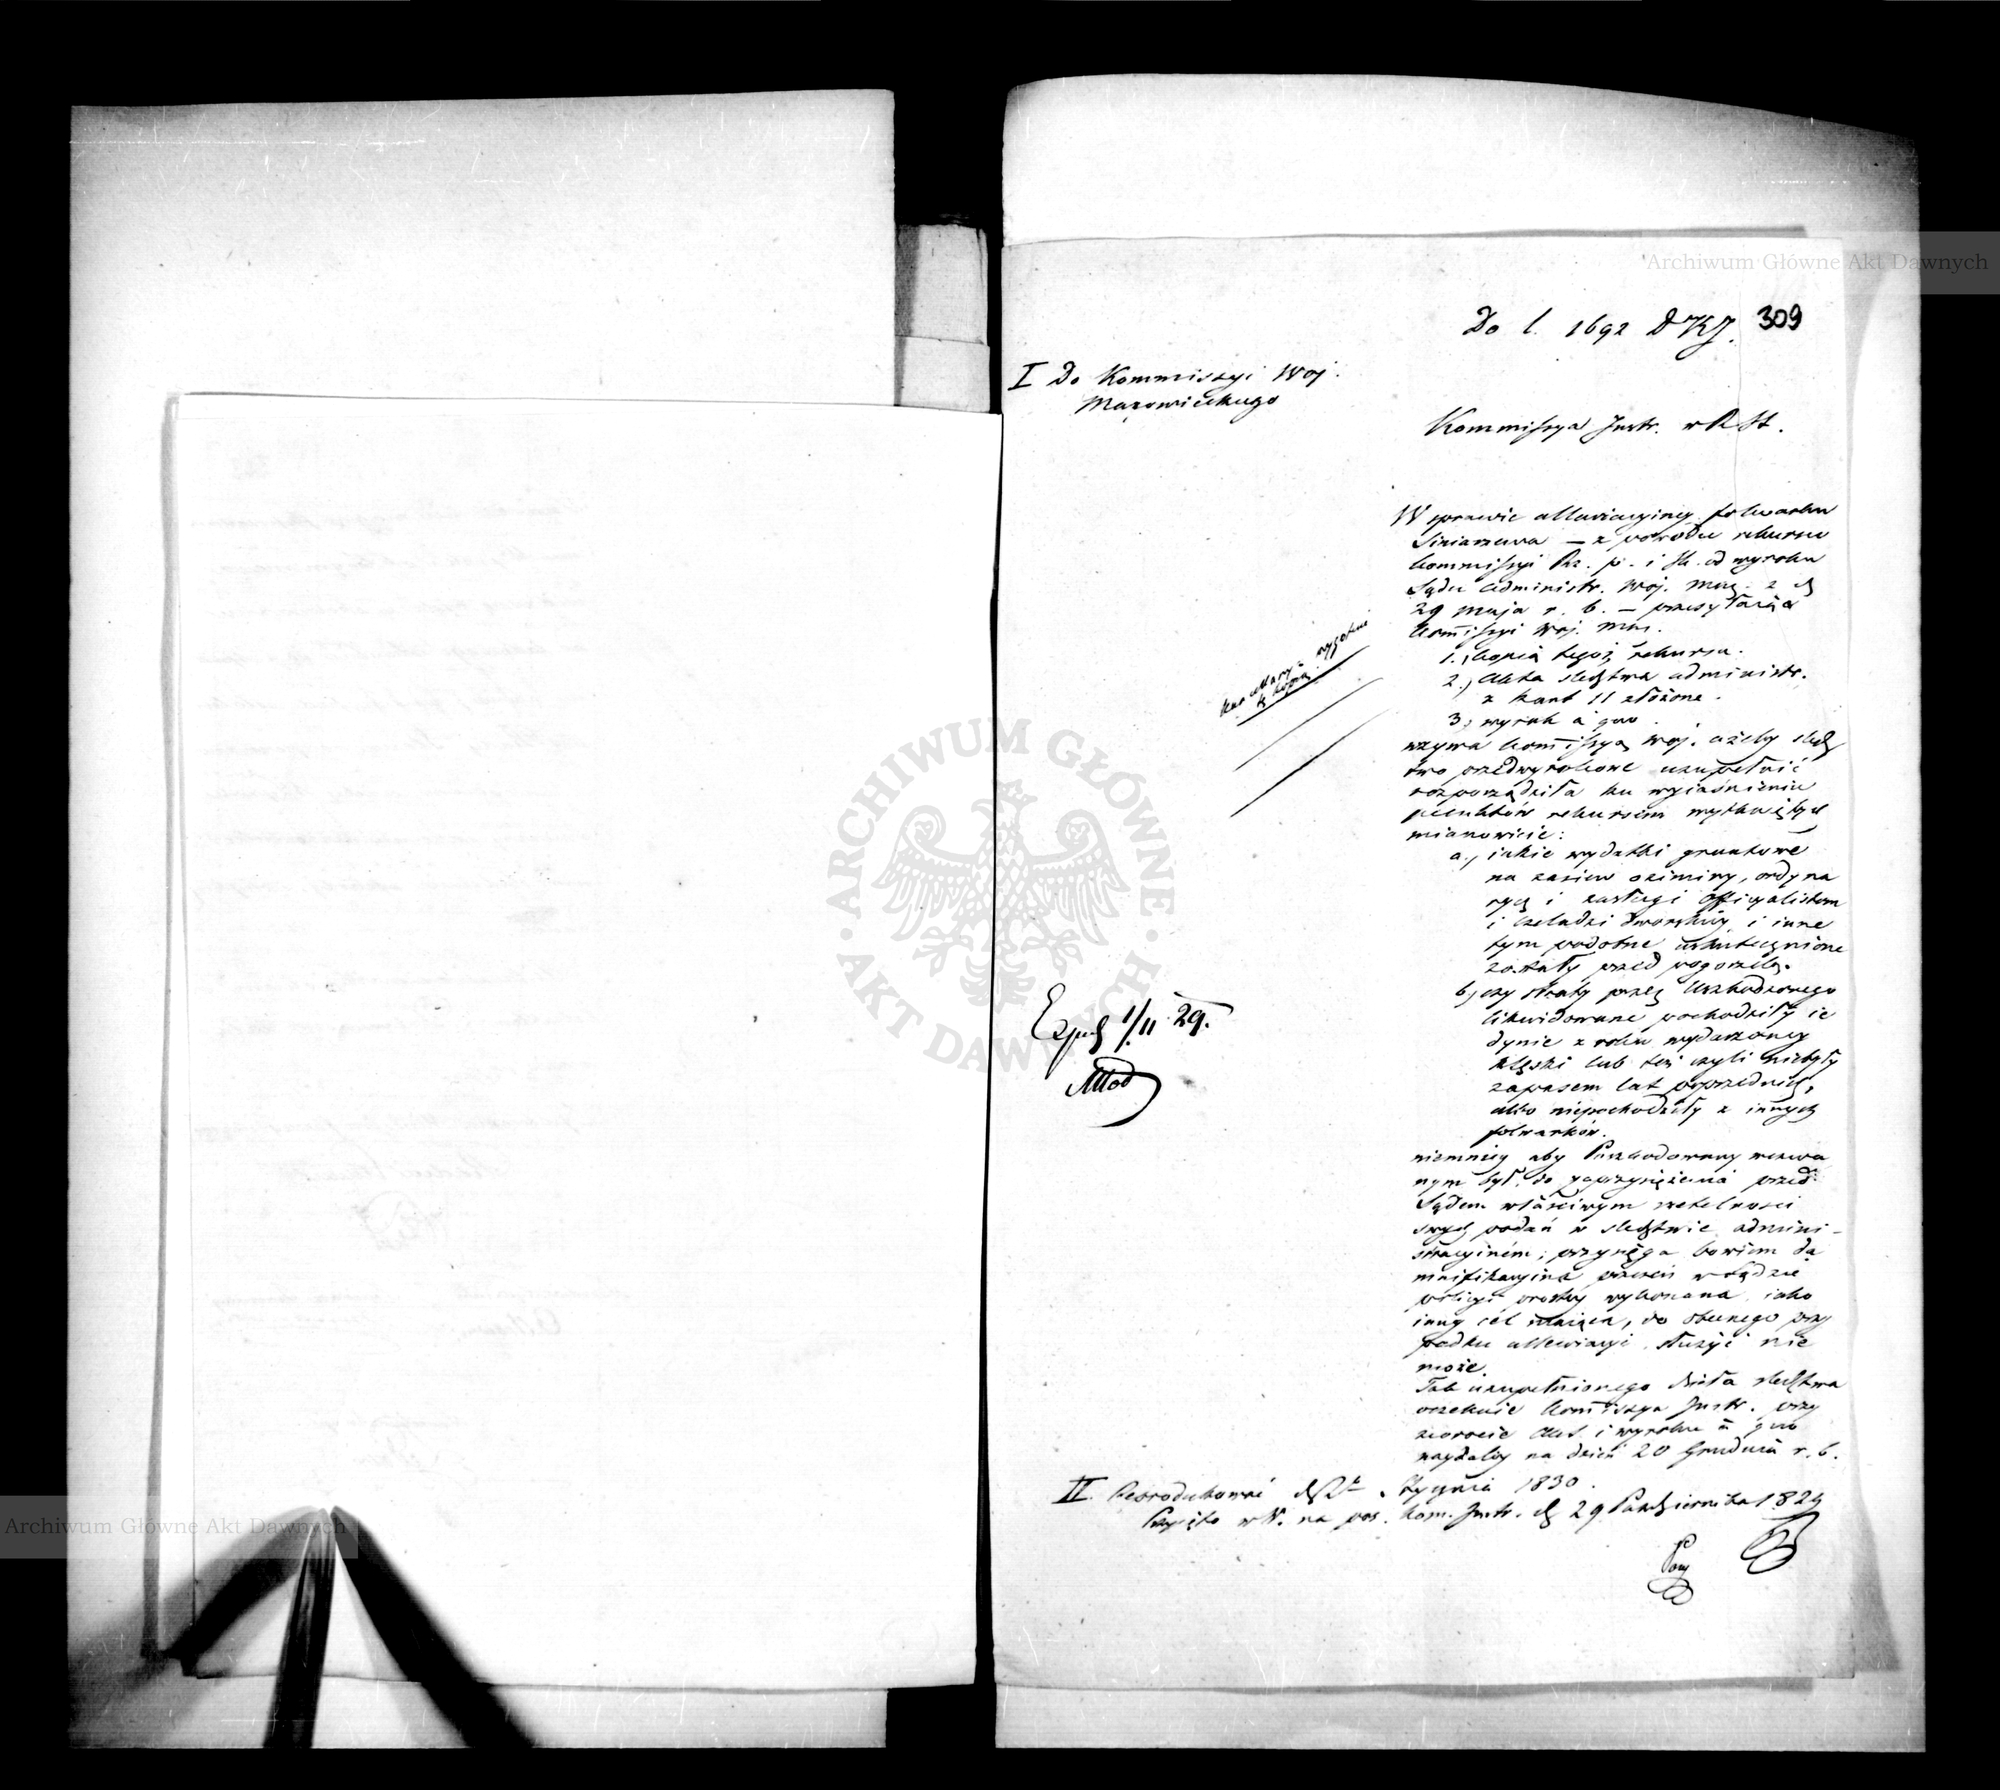 Archiwum Główne Akt Dawnych
Do l. 1692 DKJ. 309
I Do Kommissyi Woj.
Mazowieckiego
Kommissya Instr. w R St.
W sprawie allewiacyiney folwarku
Siniarzewa — z powodu rekursu
Kommissyi Rz. p. i Sk. od wyroku
Sądu Administr. Woj. Maz. z d
29 maja r. b. — przesyłaiąca
Kommissyi Woj. Maz.
1., kopią tegoż rekursu.
2., akta śledztwa administr.
z kart 11 złożone.
3, wyrok a quo.
wzywa Kommissyą Woj. ażeby śledz
two przedwyrokowe uzupełnić
rozporządziła ku wyiaśnieniu
punktów rekursem wytkniętych
mianowicie:
a., iakie wydatki gruntowe
na zasiew oziminy, ordyna
ryą i zasługi officyalistom
i czeladzi dworskiey, i inne
tym podobne uskutecznione
zostały przed pogorzelą.
b, czy straty przez Uszkodzonego
likwidowane pochodziły ie
dynie z roku wydarzoney
klęski lub też czyli niebyły
zapasem lat poprzednich,
albo niepochodziły z innych
folwarków.
niemniey aby Poszkodowany wezwa
nym był do zaprzysiężenia przed
Sądem właściwym rzetelności
swych podań w śledztwie admini-
stracyiném; przysięga bowiem da
mnifikacyina przezeń w Sądzie
policyi prostey wykonana iako
inny cel maiąca, do obecnego przy
padku allewiacyi służyć nie
może.
Tak uzupełnionego dzieła śledztwa
oczekuie Kommissya Instr. przy
zwrocie akt i wyroku a quo
naydaley na dzień 20 Grudnia r. b.
II. Reprodukować d Stycznia 1830.
Przyięto w W. na pos. Kom. Instr. d 29 Października 1829
Exped 1/11 29.
ARCHIWUM GŁÓWNE
AKT DAWNYCH
Archiwum Główne Akt Dawnych